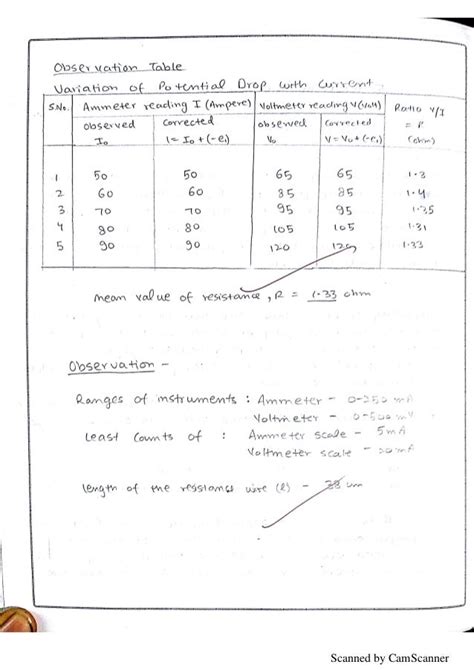 Observation Table
Variation of Potential Drop with Current.
S.No. Ammeter reading I (Ampere) Voltmeter reading V(Volt) Ratio V/I
observed corrected observed corrected = R
I₀ I = I₀+(-e₁) V₀ V = V₀+(-e₁) (ohm)
1 50 50 65 65 1.3
2 60 60 85 85 1.4
3 70 70 95 95 1.35
4 80 80 105 105 1.31
5 90 90 120 120 1.33
mean value of resistance, R = 1.33 ohm
Observation -
Ranges of instruments : Ammeter - 0-250 mA
Voltmeter - 0-500 mV
Least Counts of : Ammeter scale - 5mA
Voltmeter scale -
length of the resstance wire (l) -
Scanned by CamScanner